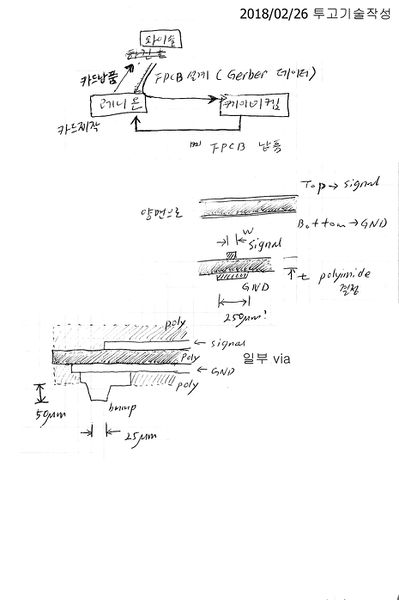 2018/02/26 투고기술작성
와이솔
카드납품
FPCB 설계 (Gerber 데이터)
레니온
케이비켐
카드제작
FPCB 납품
Top → signal
양면으로
Bottom → GND
w
signal
t polyimide
결정
GND
250μm
poly
signal
poly
일부 via
GND
poly
50μm
bump
25μm